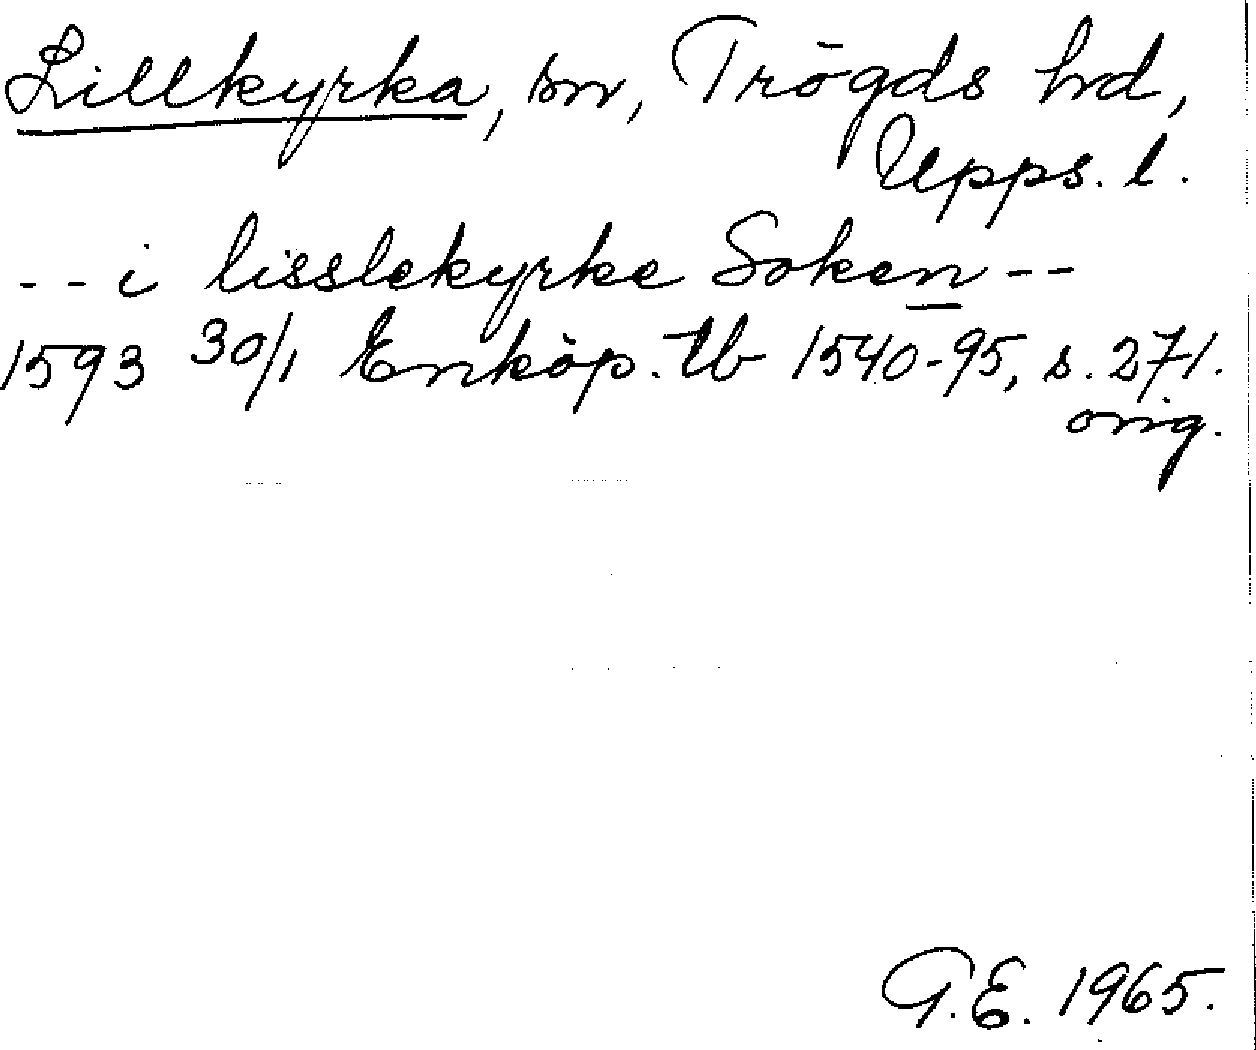 Lillkyrka, sn, Trögds hd,
Upps. l.
-- i lisslekyrke Soken --
1593 30/1 Enköp. tb 1540-95, s. 271.
orig.
G.E. 1965.